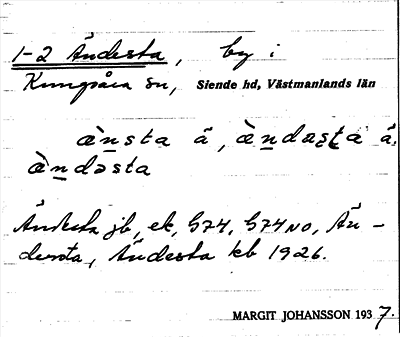 1-2 Ändesta, by i
Kungsåra sn, Siende hd, Västmanlands län
ǟ̀nsta ä̂, ǟ̀ndæsta ä̂,
ǟ̀ndəsta
Ändesta jb, ek, G74, G74NO, Än-
desta, Ändesta kb 1926.
MARGIT JOHANSSON 1937.